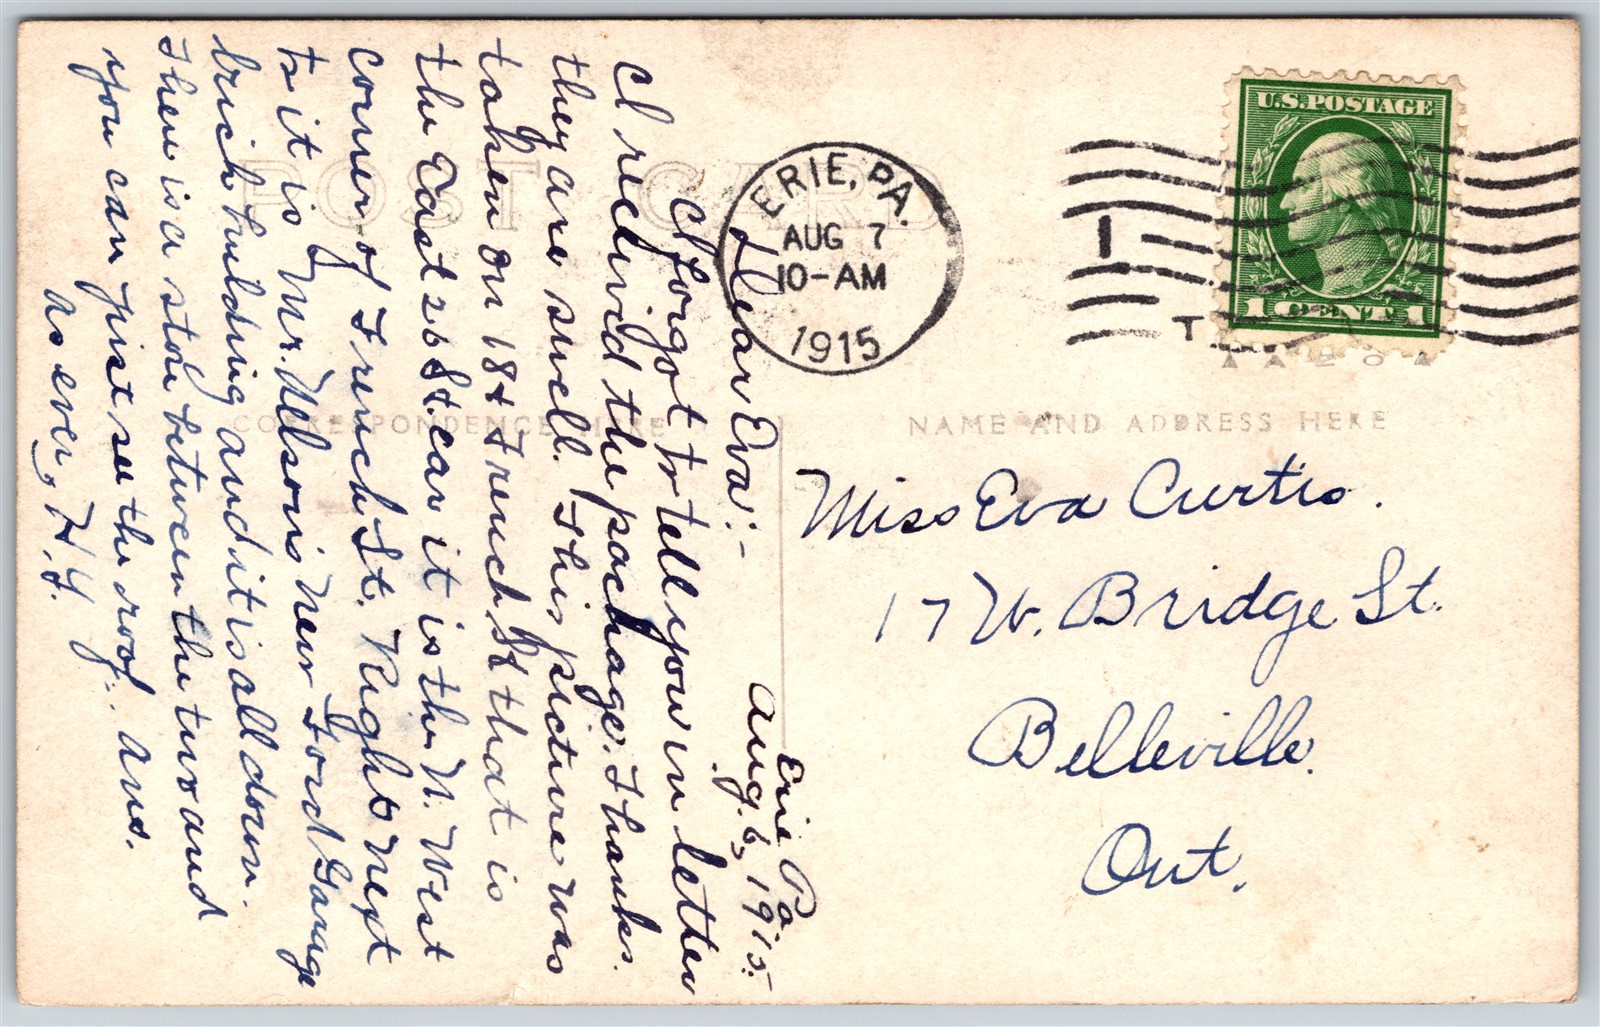 POST CARD
CORRESPONDENCE HERE
NAME AND ADDRESS HERE
U.S. POSTAGE
1 CENT 1
ERIE, PA.
AUG 7
10-AM
1915
1
T
Erie Pa
Aug. 6, 1915.
Dear Eva:-
I forgot to tell you in letter
I recived the package. Thanks.
they are swell. This picture was
taken on 18 & French St that is
the East 26 St. car it is the N. West
corner of French St. Right next
to it is Mr. Nelson's new Ford Garage
brick building and it is all down.
Then is a store between the two and
you can just see the roof. Ans.
As ever, H.Y.
Miss Eva Curtis.
17 W. Bridge St.
Belleville.
Ont.